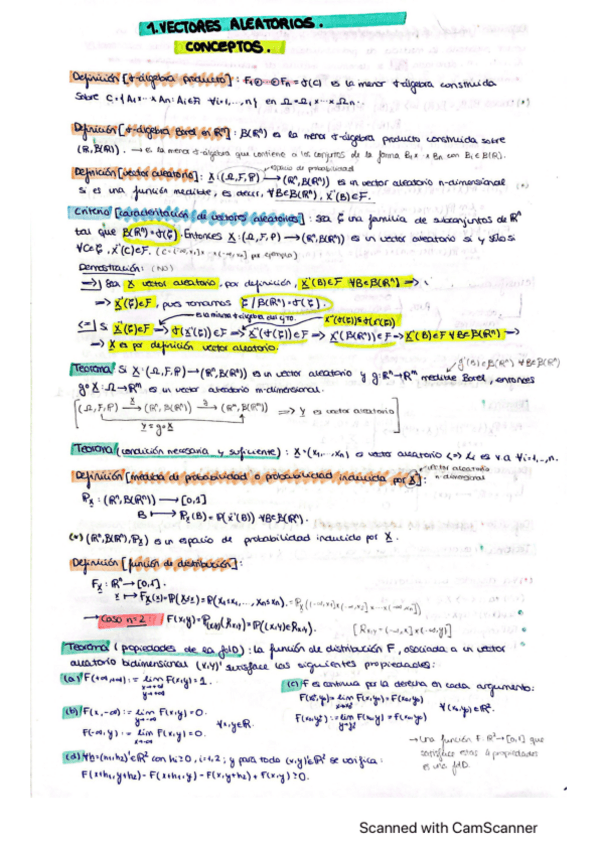 1. VECTORES ALEATORIOS.
CONCEPTOS.
Definición [σ-álgebra producto]: F₁⊗ ⊗Fₙ = σ(C) es la menor σ-álgebra construida
sobre C={A₁×...×Aₙ: Aᵢ∈Fᵢ ∀i=1,...,n} en Ω=Ω₁×...×Ωₙ.
Definición [σ-álgebra Borel en ℝⁿ]: B(ℝⁿ) es la menor σ-álgebra producto construida sobre
(ℝ,B(ℝ)). → es la menor σ-álgebra que contiene a los conjuntos de la forma B₁×...×Bₙ con Bᵢ∈B(ℝ).
espacio de probabilidad
Definición [vector aleatorio]: X:(Ω,F,P)→(ℝⁿ,B(ℝⁿ)) es un vector aleatorio n-dimensional
si es una función medible, es decir, ∀B∈B(ℝⁿ), X⁻¹(B)∈F.
Criterio [caracterización de vectores aleatorios]: sea ζ una familia de subconjuntos de ℝⁿ
tal que B(ℝⁿ)=σ(ζ). Entonces X:(Ω,F,P)→(ℝⁿ,B(ℝⁿ)) es un vector aleatorio si y sólo si
∀C∈ζ, X⁻¹(C)∈F. (C=(-∞,x₁]×...×(-∞,xₙ] por ejemplo)
Demostración: (NO)
⇒) Sea X vector aleatorio, por definición, X⁻¹(B)∈F ∀B∈B(ℝⁿ) ⇒
⇒ X⁻¹(ζ)∈F, pues tomamos ζ/B(ℝⁿ)=σ(ζ).
⇐) Si X⁻¹(ζ)∈F ⇒ σ(X⁻¹(ζ))∈F ⇒ X⁻¹(σ(ζ))∈F ⇒ X⁻¹(B(ℝⁿ))∈F ⇒ X⁻¹(B)∈F ∀B∈B(ℝⁿ) ⇒
⇒ X es por definición vector aleatorio.
g⁻¹(B)∈B(ℝⁿ) ∀B∈B(ℝᵐ)
Teorema Si X:(Ω,F,P)→(ℝⁿ,B(ℝⁿ)) es un vector aleatorio y g:ℝⁿ→ℝᵐ medible Borel, entonces
g∘X:Ω→ℝᵐ es un vector aleatorio m-dimensional.
[(Ω,F,P) → (ℝⁿ,B(ℝⁿ)) → (ℝᵐ,B(ℝᵐ)) ⇒ Y es vector aleatorio]
Y=g∘X
Teorema (condición necesaria y suficiente): X=(x₁,...,xₙ) es vector aleatorio ⇔ xᵢ es v.a ∀i=1,..,n.
vector aleatorio
Definición [medida de probabilidad o probabilidad inducida por X]: n-dimensional
Pₓ:(ℝⁿ,B(ℝⁿ))→[0,1]
B ↦ Pₓ(B)=P(X⁻¹(B)) ∀B∈B(ℝⁿ).
(*) (ℝⁿ,B(ℝⁿ),Pₓ) es un espacio de probabilidad inducido por X.
Definición [función de distribución]:
Fₓ:ℝⁿ→[0,1].
x ↦ Fₓ(x)=P(X≤x)=P(X₁≤x₁,...,Xₙ≤xₙ).=Pₓ((-∞,x₁]×(-∞,x₂]×...×(-∞,xₙ])
→ Caso n=2: F(x,y)=P₍ₓ,ᵧ₎(Rx,y)=P((X,Y)∈Rx,y). [Rx,y=(-∞,x]×(-∞,y]]
Teorema (propiedades de la fdD): la función de distribución F, asociada a un vector
aleatorio bidimensional (X,Y)' satisface las siguientes propiedades:
(a) F(+∞,+∞):= lim F(x,y)=1.
x→+∞
y→+∞
(b) F(x,-∞):= lim F(x,y)=0.
y→-∞
F(-∞,y):= lim F(x,y)=0. ∀x,y∈ℝ.
x→-∞
(c) F es continua por la derecha en cada argumento:
F(x⁺,y)= lim F(x,y)=F(x₀,y)
F(x,y⁺):= lim F(x,y)=F(x,y₀) ∀(x,y)∈ℝ².
→ Una función F:ℝ²→[0,1] que
satisface estas 4 propiedades
es una fdD.
(d) ∀h=(h₁,h₂)'∈ℝ² con hᵢ≥0, i=1,2; y para todo (x,y)'∈ℝ² se verifica:
F(x+h₁,y+h₂)-F(x+h₁,y)-F(x,y+h₂)+F(x,y)≥0.
Scanned with CamScanner